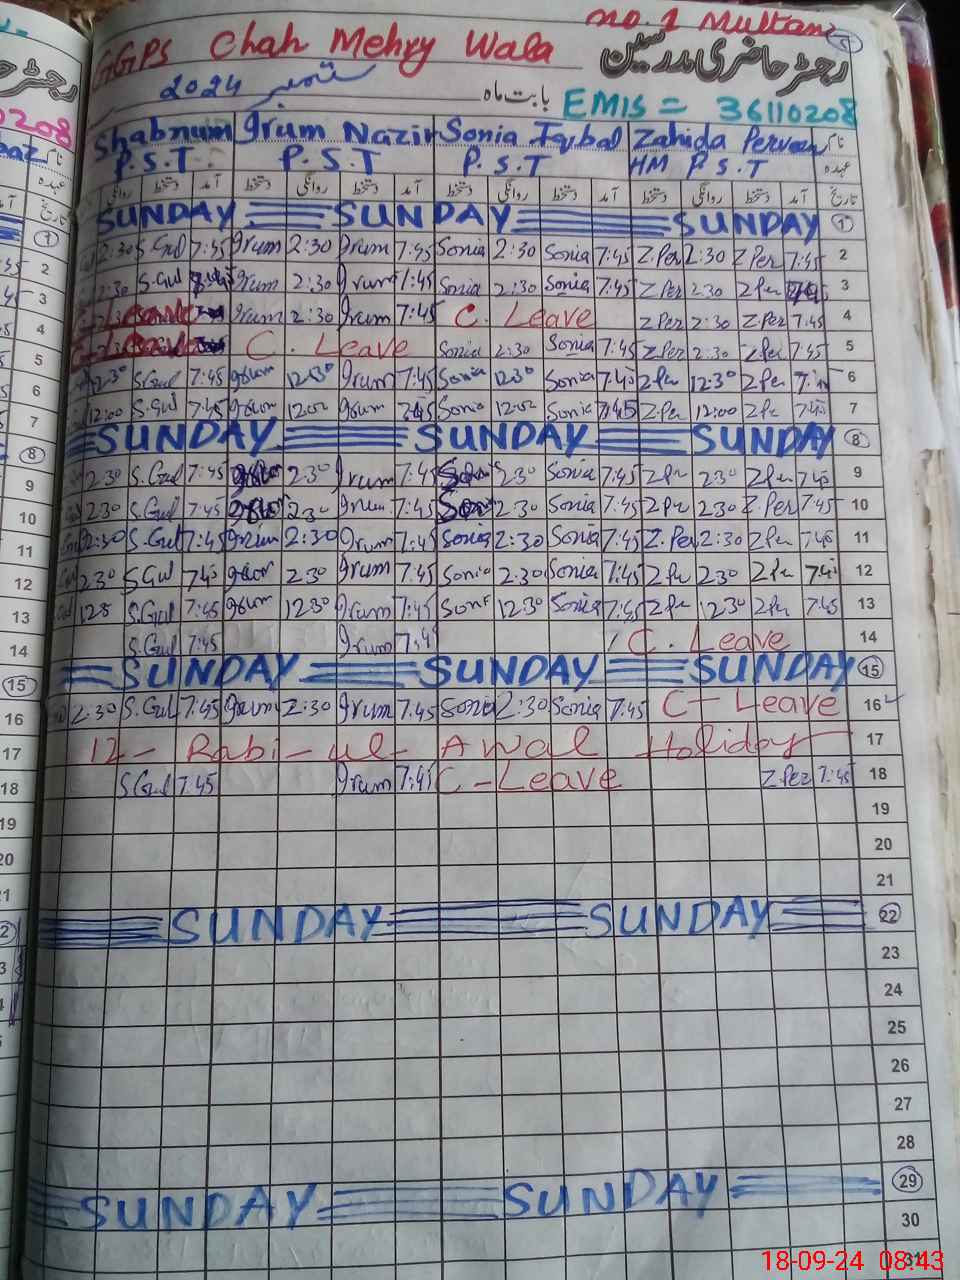 no.1 Multan
GGPS Chah Mehry Wala
رجسٹر حاضری مدرسین
ستمبر 2024 بابت ماہ
EMIS = 36110208
Shabnum Irum Nazir Sonia Iqbal Zahida Perveen نام
P.S.T P.S.T P.S.T HM P.S.T عہدہ
روانگی دستخط آمد دستخط روانگی دستخط آمد دستخط روانگی دستخط آمد دستخط روانگی دستخط آمد تاریخ
SUNDAY SUNDAY SUNDAY 1
2:30 S.Gul 7:45 Irum 2:30 Irum 7:45 Sonia 2:30 Sonia 7:45 Z.Per 2:30 Z Per 7:45 2
2:30 S.Gul Irum 2:30 Irum 7:45 Sonia 2:30 Sonia 7:45 Z Per 2:30 Z Per 3
C-Leave Irum 2:30 Irum 7:45 C. Leave Z Per 2:30 Z.Per 7:45 4
C-Leave C. Leave Sonia 2:30 Sonia 7:45 Z Per 2:30 Z Per 7:45 5
12:30 S.Gul 7:45 Irum 12:30 Irum 7:45 Sonia 12:30 Sonia 7:45 Z Per 12:30 Z Per 6
12:00 S.Gul 7:45 Irum 12:00 Irum 7:45 Sonia 12:00 Sonia 7:45 Z.Per 12:00 Z Per 7:45 7
SUNDAY SUNDAY SUNDAY 8
2:30 S.Gul 7:45 2:30 Irum 7:45 2:30 Sonia 7:45 Z Per 2:30 Z Per 7:45 9
2:30 S.Gul 7:45 2:30 Irum 7:45 2:30 Sonia 7:45 Z Per 2:30 Z.Per 7:45 10
2:30 S.Gul 7:45 Irum 2:30 Irum 7:45 Sonia 2:30 Sonia 7:45 Z.Per 2:30 Z Per 7:45 11
2:30 S Gul 7:45 Irum 2:30 Irum 7:45 Sonia 2:30 Sonia 7:45 Z Per 2:30 Z Per 7:45 12
S.Gul 7:45 Irum 12:30 Irum 7:45 12:30 Sonia 7:45 Z Per 12:30 Z Per 7:45 13
S.Gul 7:45 Irum 7:45 C. Leave 14
SUNDAY SUNDAY SUNDAY 15
2:30 S.Gul 7:45 Irum 2:30 Irum 7:45 Sonia 2:30 Sonia 7:45 C-Leave 16
12-Rabi-ul-Awal Holiday 17
S Gul 7:45 Irum 7:45 C-Leave Z Per 7:45 18
19
20
21
SUNDAY SUNDAY 22
23
24
25
26
27
28
SUNDAY SUNDAY 29
30
31
18-09-24 08:43